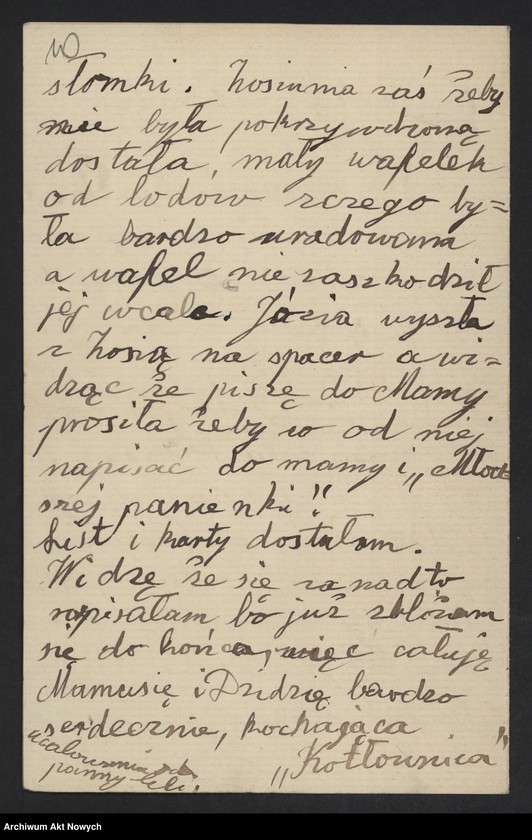 słomki. Zosiunia zaś żeby
nie była pokrzywdzoną
dostała, mały wafelek
od lodów z czego by=
ła bardzo uradowana
a wafel nie zaszkodził
jej wcale. Józia wyszła
z Zosią na spacer a wi=
dząc że piszę do Mamy
prosiła żeby co od niej
napisać do mamy i „Młod
szej panienki"
List i karty dostałam.
Widzę że się zanadto
rozpisałam bo już zbliżam
się do końca, więc całuję
Mamusię i Dzidzię bardzo
serdecznie, kochająca
„Kołtownica"
ucałowania od
panny Lili.
Archiwum Akt Nowych